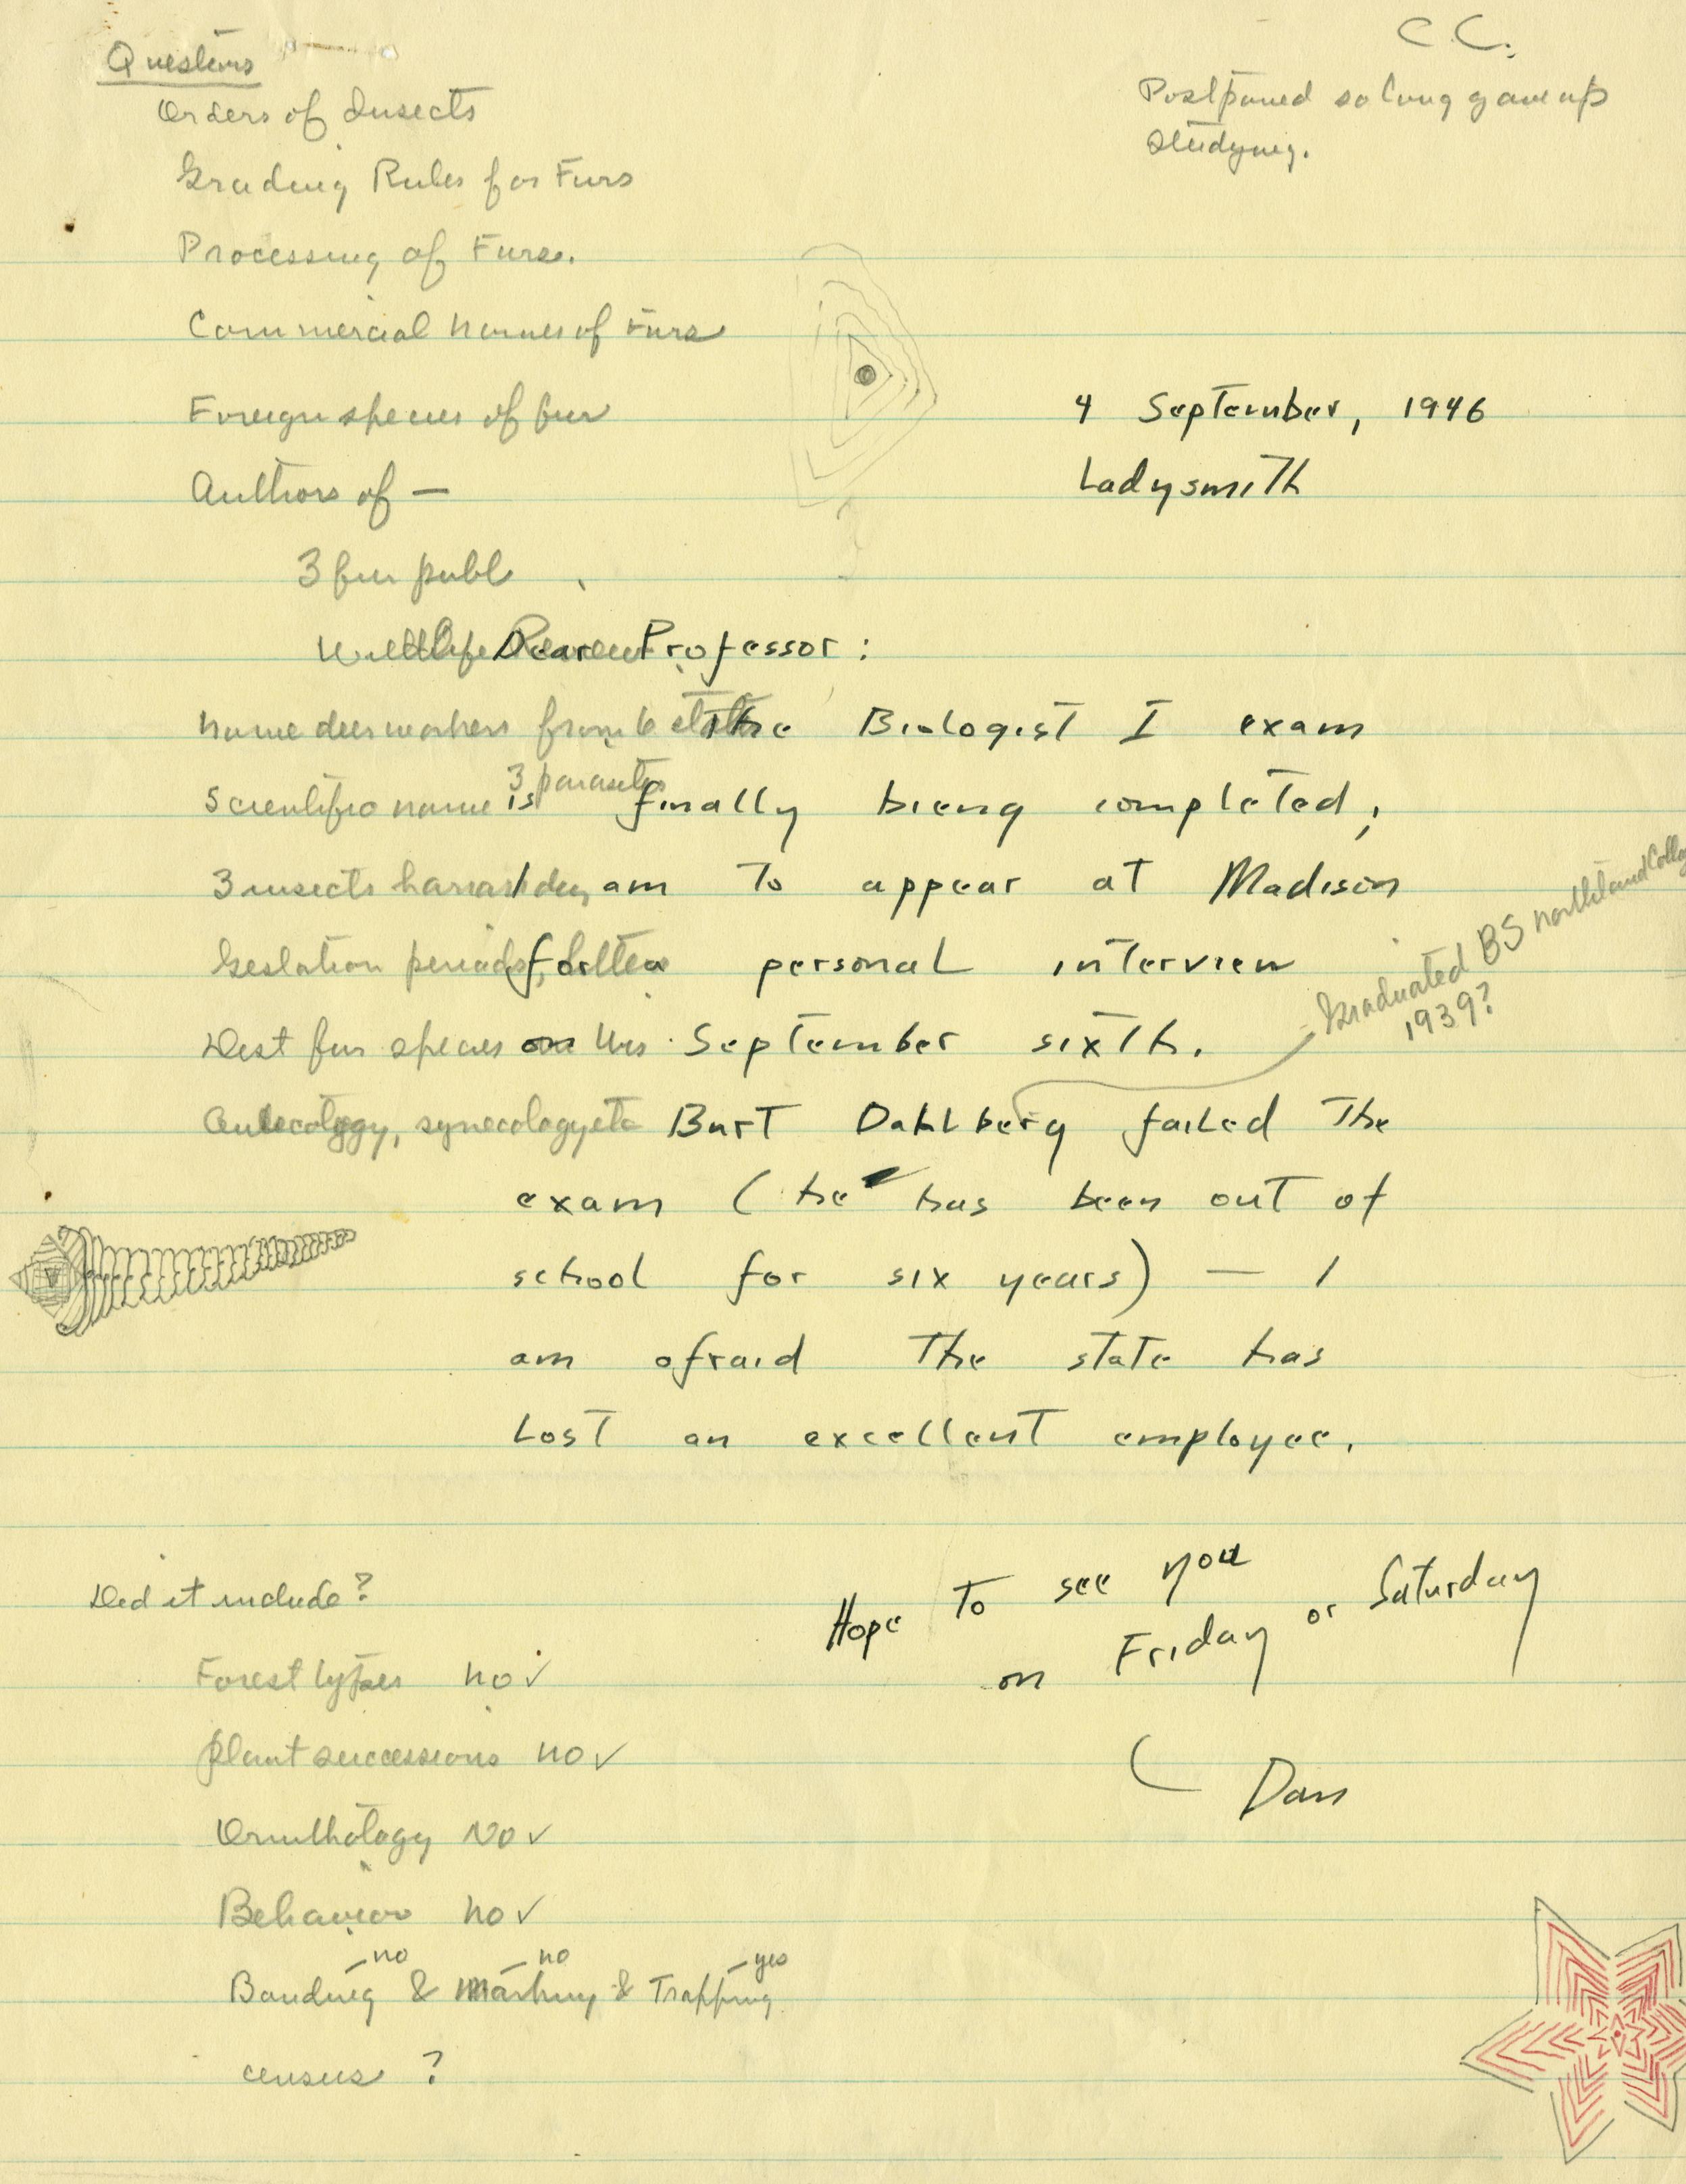 Questions
Orders of Insects
Grading Rules for Furs
Processing of Furs.
Commercial names of Furs
Foreign species of fur
Authors of —
3 fur publ
Wildlife Review
Name deer workers from 6 states
Scientific name 3 parasites
3 insects harass deer
Gestation periods, litter
Dist fur species in Wis.
Autecology, synecology etc
C.C.
Postponed so long gave up
studying.
4 September, 1946
Ladysmith
Dear Professor:
The Biologist I exam
is finally bieng completed;
I am to appear at Madison
for a personal interview
on September sixth.
Burt Dahlberg failed the
exam (he has been out of
school for six years) — I
am afraid the state has
lost an excellent employee.
Graduated BS Northland College
1939?
Hope to see you
on Friday or Saturday
Dan
Did it include?
Forest types no ✓
plant successions no ✓
Ornithology No ✓
Behavior no ✓
– no – no – yes
Banding & Marking & Trapping
census ?